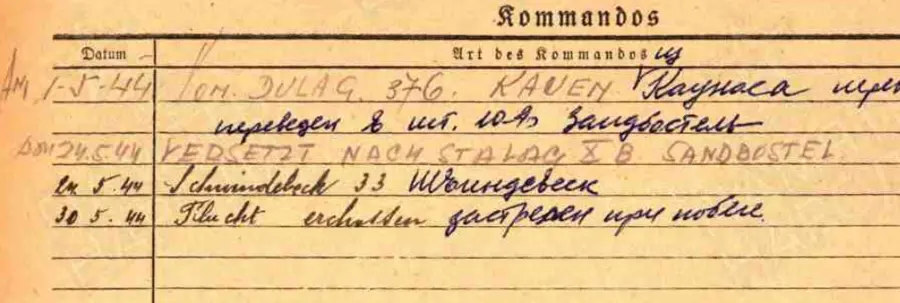 Kommandos
Datum Art des Kommandos из
Am 1-5-44 Vom. DULAG. 376. KAUEN Каунаса
переведен в шт. 10 Зандбостель
Dom 24.5.44 VERSETZT NACH STALAG X B SANDBOSTEL.
24 5.44 Schwindebeck 33 Швиндебеск
30 5.44 Flucht erchossen застрелен при побеге.